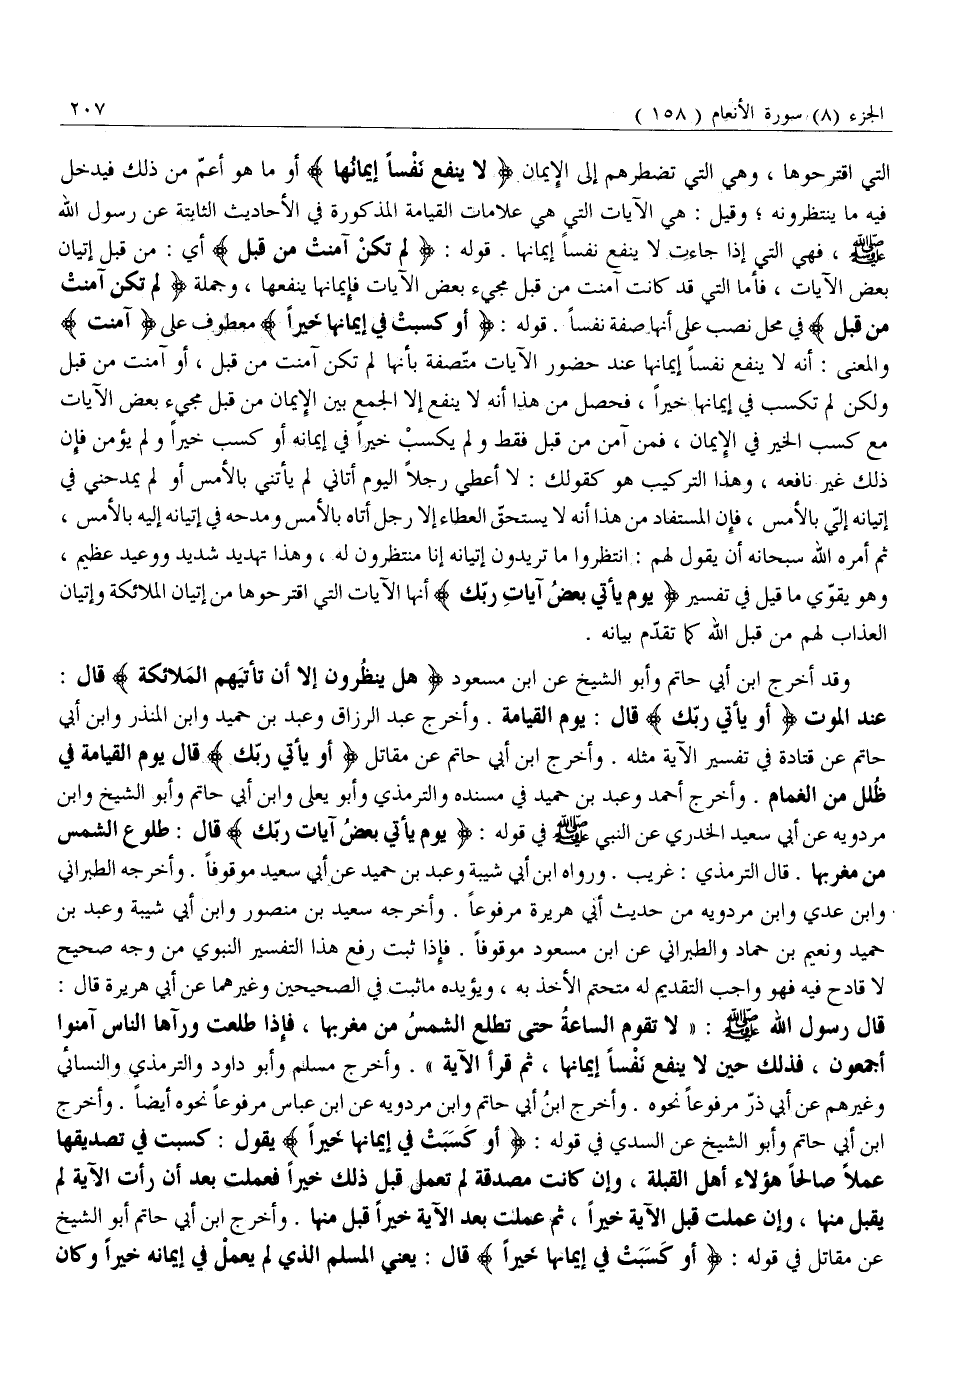 الجزء (٨) سورة الأنعام ( ١٥٨ )
٢٠٧
التي اقترحوها ، وهي التي تضطرهم إلى الإيمان ﴿ لا ينفع نَفْساً إيمانُها ﴾ أو ما هو أعمّ من ذلك فيدخل
فيه ما ينتظرونه ؛ وقيل : هي الآيات التي هي علامات القيامة المذكورة في الأحاديث الثابتة عن رسول الله
ﷺ ، فهي التي إذا جاءت لا ينفع نفساً إيمانها . قوله : ﴿ لم تكنْ آمنتْ من قبل ﴾ أي : من قبل إتيان
بعض الآيات ، فأما التي قد كانت آمنت من قبل مجيء بعض الآيات فإيمانها ينفعها ، وجملة ﴿ لم تكن آمنتْ
من قبل ﴾ في محل نصب على أنها صفة نفساً . قوله : ﴿ أو كسبتْ في إيمانها خَيراً ﴾ معطوف على ﴿ آمنت ﴾
والمعنى : أنه لا ينفع نفساً إيمانها عند حضور الآيات متّصفة بأنها لم تكن آمنت من قبل ، أو آمنت من قبل
ولكن لم تكسب في إيمانها خيراً ، فحصل من هذا أنه لا ينفع إلا الجمع بين الإيمان من قبل مجيء بعض الآيات
مع كسب الخير في الإيمان ، فمن آمن من قبل فقط ولم يكسبْ خيراً في إيمانه أو كسب خيراً ولم يؤمن فإن
ذلك غير نافعه ، وهذا التركيب هو كقولك : لا أعطي رجلاً اليوم أتاني لم يأتني بالأمس أو لم يمدحني في
إتيانه إليّ بالأمس ، فإن المستفاد من هذا أنه لا يستحقّ العطاء إلا رجل أتاه بالأمس ومدحه في إتيانه إليه بالأمس ،
ثم أمره الله سبحانه أن يقول لهم : انتظروا ما تريدون إتيانه إنا منتظرون له ، وهذا تهديد شديد ووعيد عظيم ،
وهو يقوّي ما قيل في تفسير ﴿ يوم يأتي بعضُ آياتِ ربّك ﴾ أنها الآيات التي اقترحوها من إتيان الملائكة وإتيان
العذاب لهم من قبل الله كما تقدّم بيانه .
وقد أخرج ابن أبي حاتم وأبو الشيخ عن ابن مسعود ﴿ هل ينظُرون إلا أن تأتيَهم المَلائكة ﴾ قال :
عند الموت ﴿ أو يأتي ربّك ﴾ قال : يوم القيامة . وأخرج عبد الرزاق وعبد بن حميد وابن المنذر وابن أبي
حاتم عن قتادة في تفسير الآية مثله . وأخرج ابن أبي حاتم عن مقاتل ﴿ أو يأتي ربّك ﴾ قال يوم القيامة في
ظُلل من الغمام . وأخرج أحمد وعبد بن حميد في مسنده والترمذي وأبو يعلى وابن أبي حاتم وأبو الشيخ وابن
مردويه عن أبي سعيد الخدري عن النبي ﷺ في قوله : ﴿ يوم يأتي بعضُ آيات ربّك ﴾ قال : طلوع الشمس
من مغربها . قال الترمذي : غريب . ورواه ابن أبي شيبة وعبد بن حميد عن أبي سعيد موقوفاً . وأخرجه الطبراني
وابن عدي وابن مردويه من حديث أبي هريرة مرفوعاً . وأخرجه سعيد بن منصور وابن أبي شيبة وعبد بن
حميد ونعيم بن حماد والطبراني عن ابن مسعود موقوفاً . فإذا ثبت رفع هذا التفسير النبوي من وجه صحيح
لا قادح فيه فهو واجب التقديم له متحتم الأخذ به ، ويؤيده ماثبت في الصحيحين وغيرهما عن أبي هريرة قال :
قال رسول الله ﷺ : « لا تقوم الساعةُ حتى تطلع الشمسُ من مغربها ، فإذا طلعت ورآها الناس آمنوا
أجمعون ، فذلك حين لا ينفع نَفْساً إيمانها ، ثم قرأ الآية » . وأخرج مسلم وأبو داود والترمذي والنسائي
وغيرهم عن أبي ذرّ مرفوعاً نحوه . وأخرج ابنُ أبي حاتم وابن مردويه عن ابن عباس مرفوعاً نحوه أيضاً . وأخرج
ابن أبي حاتم وأبو الشيخ عن السدي في قوله : ﴿ أو كَسَبَتْ في إيمانها خَيراً ﴾ يقول : كسبت في تصديقها
عملاً صالحاً هؤلاء أهل القبلة ، وإن كانت مصدقة لم تعمل قبل ذلك خيراً فعملت بعد أن رأت الآية لم
يقبل منها ، وإن عملت قبل الآية خيراً ، ثم عملت بعد الآية خيراً قبل منها . وأخرج ابن أبي حاتم أبو الشيخ
عن مقاتل في قوله : ﴿ أو كَسَبَتْ في إيمانها خَيراً ﴾ قال : يعني المسلم الذي لم يعملْ في إيمانه خيراً وكان